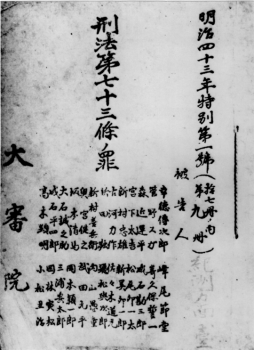 明治四十三年特別第一號(拾七冊ノ内第九冊)
刑法第七十三條ノ罪
被告人
幸徳傳次郎 峰尾節堂
管野スガ 崎久保誓一
森近運平 成石勘三郎
宮下太吉 松尾卯一太
新村忠雄 新美卯一郎
古河力作 佐々木道元
新田融 飛松與次郎
新村善兵衛 内山愚童
奥宮健之 武田九平
坂本清馬 岡本頴一郎
大石誠之助 三浦安太郎
成石平四郎 岡林寅松
高木顯明 小松丑治
大審院